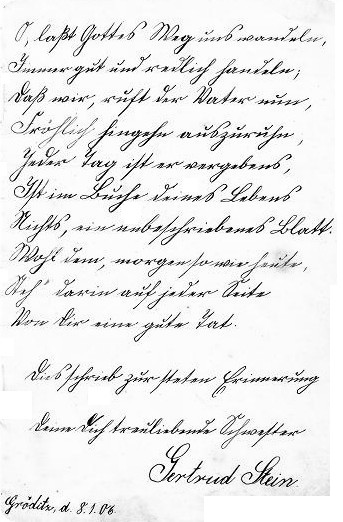 O, laßt Gottes Weg uns wandeln,
Immer gut und redlich handeln;
Daß wir, ruft der Vater nun,
Fröhlich hingehn auszuruhn,
Jeder Tag ist er vergebens,
Ist im Buche deines Lebens
Nichts, ein unbeschriebenes Blatt.
Wohl dem, morgen so wie heute,
Steh' darin auf jeder Seite
Von dir eine gute Tat.
Dies schrieb zur steten Erinnerung
Deine Dich treuliebende Schwester
Gertrud Stein.
Gröditz, d. 8.1.06.